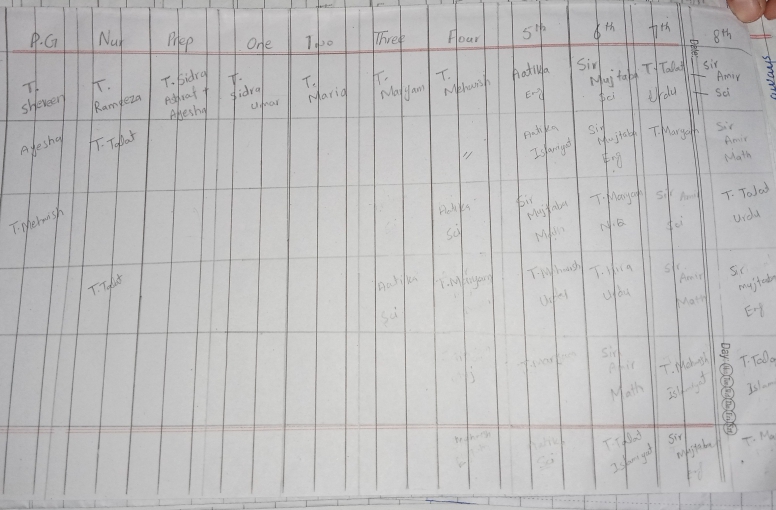 P.G Nur Prep One Two Three Four 5th 6th 7th 8th
T. Sheveen
T. Rameeza
T. Sidra
Ayesha
T. Sidra
Umar
T. Maria
T. Maryam
T. Mehwish
Aatika
Eng
Sir Mujtaba
Sci
T. Talat
Urdu
Sir Amir
Sci
Ayesha
T. Talat
"
Aatika
Islamiyat
Sir Mujtaba
Eng
T. Maryam
Sir Amir
Math
T. Mehwish
Aatika
Sci
Sir Mujtaba
Math
T. Maryam
Sir Amir
Sci
T. Talat
Urdu
T. Talat
Aatika
Sci
T. Maryam
T. Mehwish
T. Hira
Urdu
Sir Amir
Math
Sir mujtaba
Eng
T. Maryam
Sir Amir
Math
T. Mehwish
Islamiyat
Sci
T. Talat
Islamiyat
Sir Mujtaba
Eng
Date:
Day: